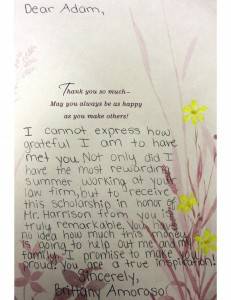 Dear Adam,
Thank you so much—
May you always be as happy
as you make others!
I cannot express how
grateful I am to have
met you. Not only did I
have the most rewarding
summer working at your
law firm, but to receive
this scholarship in honor of
Mr. Harrison from you is
truly remarkable. You have
no idea how much this money
is going to help out me and my
family. I promise to make you
proud! You are a true inspiration!
Sincerely,
Brittany Amoroso